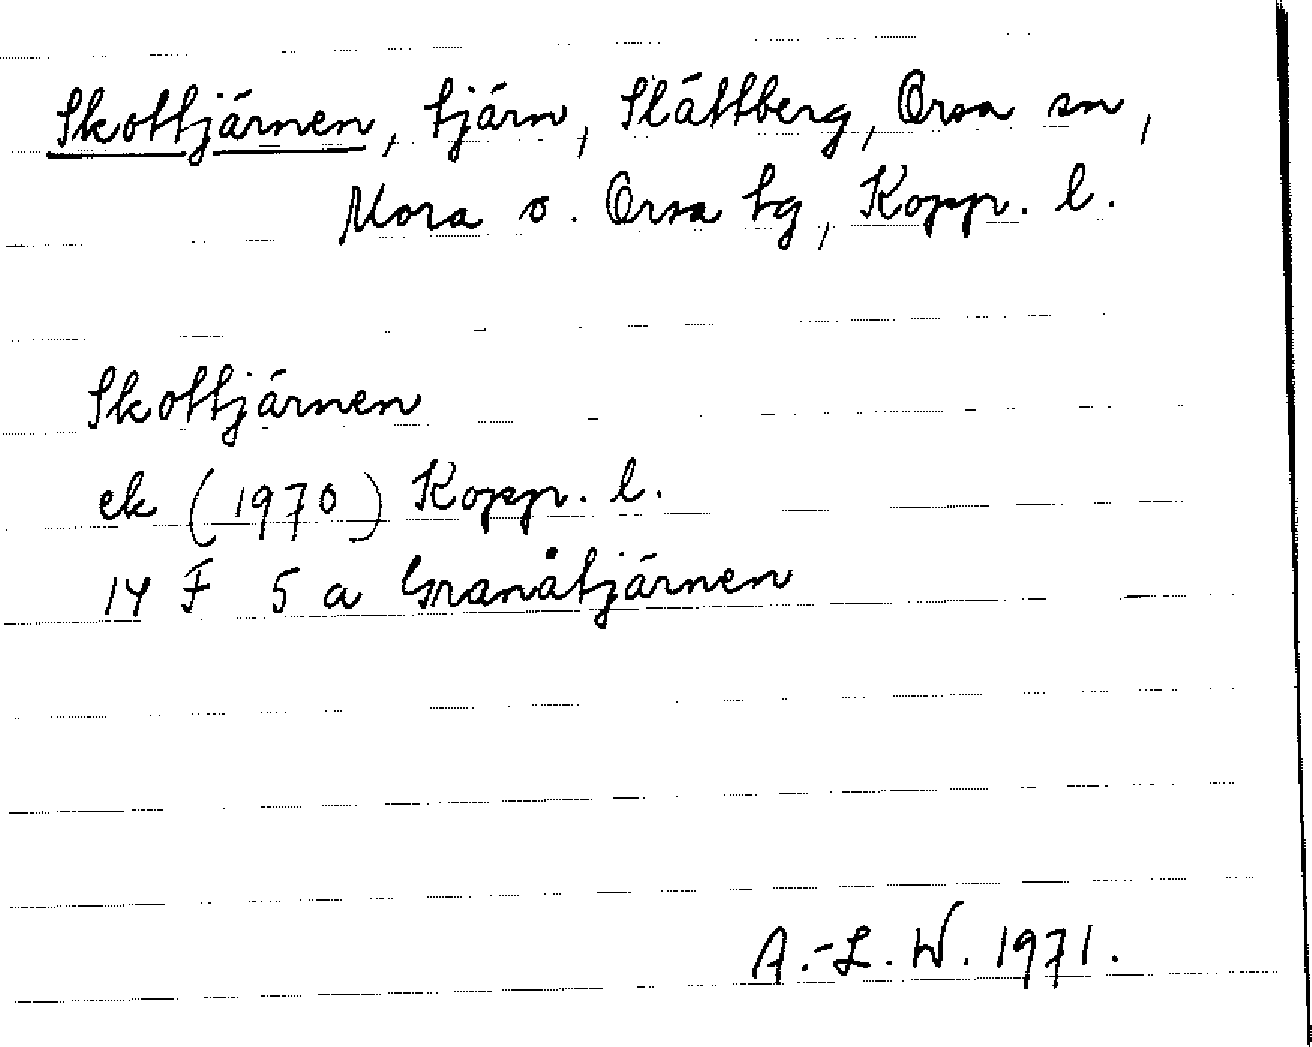 Skottjärnen, tjärn, Slättberg, Orsa sn,
Mora o. Orsa tg, Kopp. l.
Skottjärnen
ek (1970) Kopp. l.
14 F 5 a Granåtjärnen
A.-L. W. 1971.